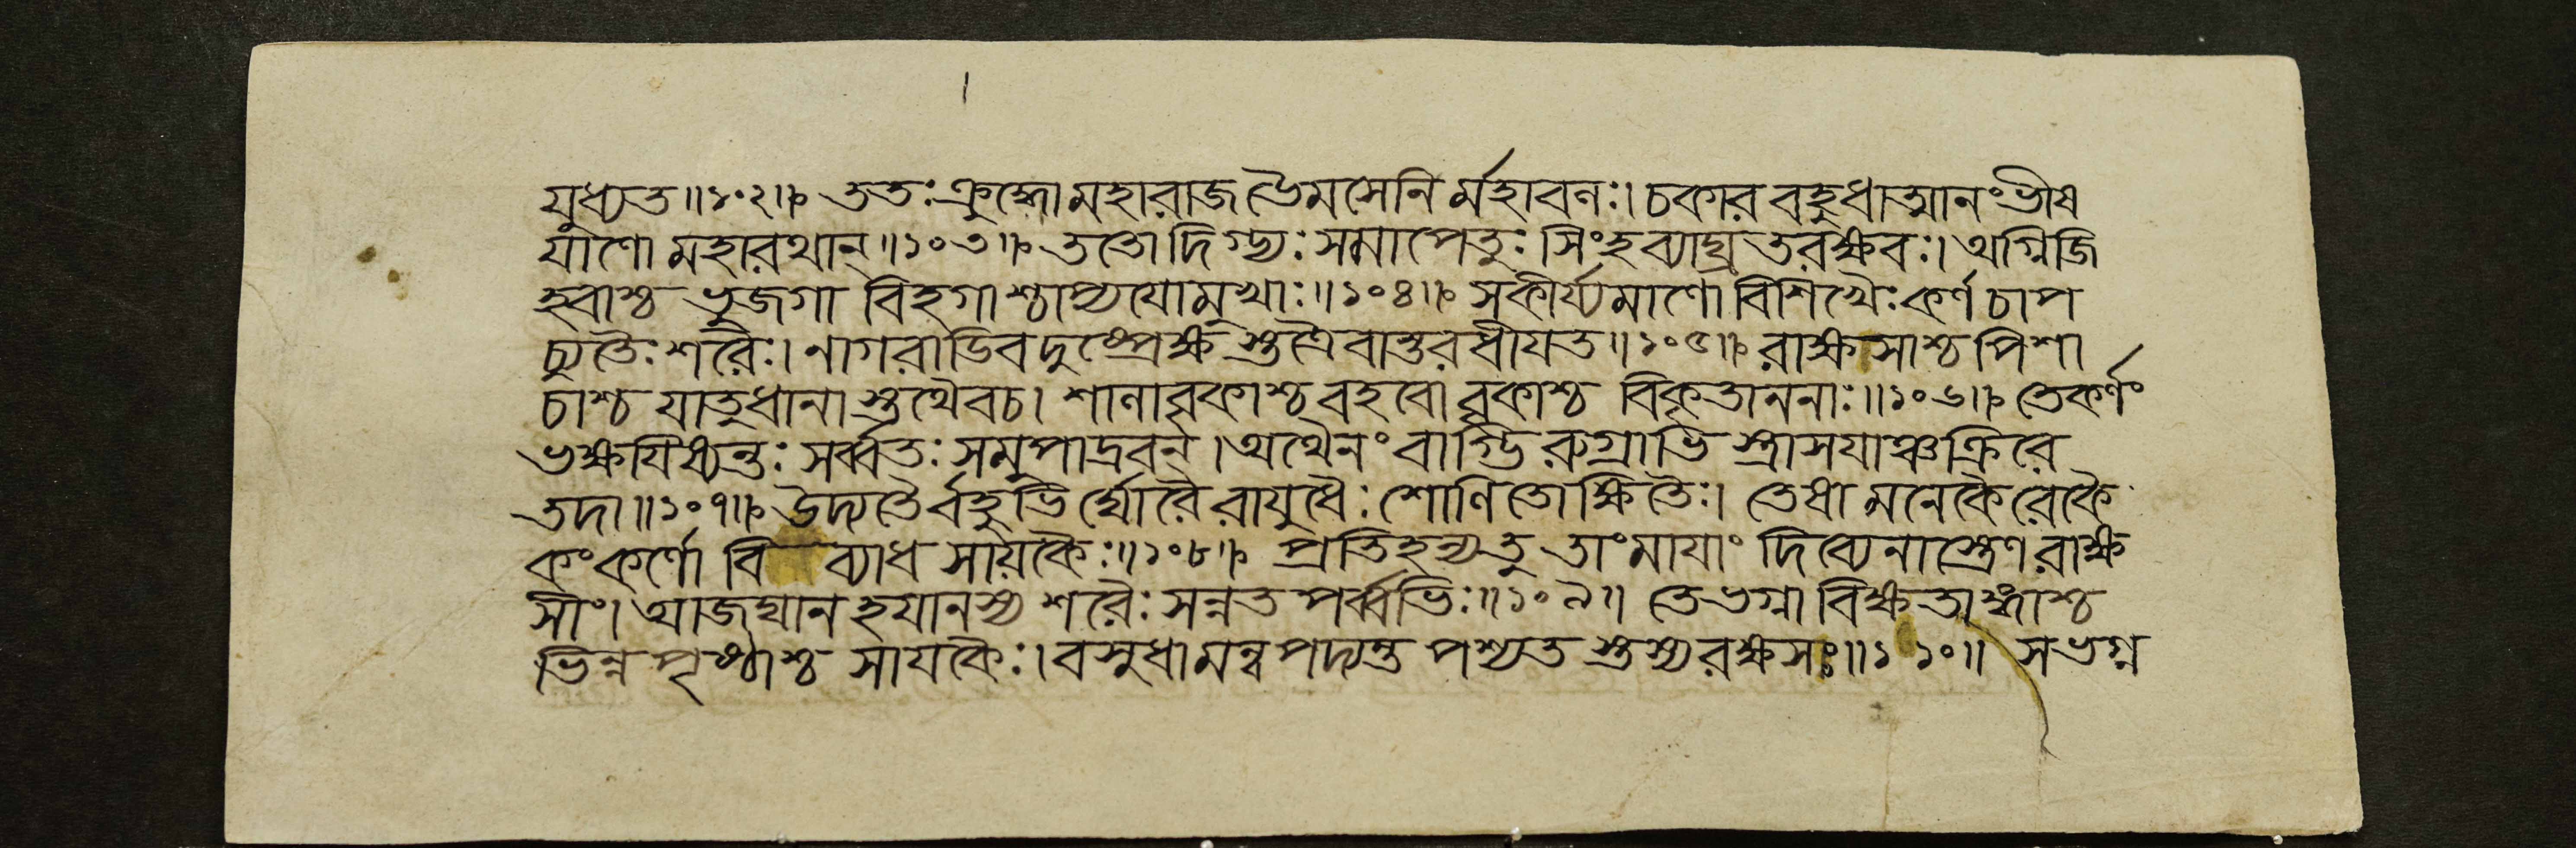 যুধ্যত॥১০২॥ ততঃ ক্রুদ্ধো মহারাজ ভৈমসেনি র্মহাবলঃ। চকার বহুধাত্মানং ভীষ
যাণো মহারথান্॥১০৩॥ ততো দিগ্ভ্যঃ সমাপেতুঃ সিংহব্যাঘ্রতরক্ষবঃ। অগ্নিজি
হ্বাশ্চ ভুজগা বিহগাশ্চাপ্যযোমুখাঃ॥১০৪॥ সকীর্য্যমাণো বিশিখৈঃ কর্ণচাপ
চ্যুতৈঃ শরৈঃ। নাগরাডিব দুষ্প্রেক্ষ স্তত্রৈবান্তরধীযত॥১০৫॥ রাক্ষসাশ্চ পিশা
চাশ্চ যাতুধানা স্তথৈবচ। শালাবৃকাশ্চ বহবো বৃকাশ্চ বিকৃতাননাঃ॥১০৬॥ তেকর্ণং
ভক্ষযিষ্যন্তঃ সর্ব্বতঃ সমুপাদ্রবন্। অথৈনং বাগ্ভিরুগ্রাভি স্ত্রাসযাঞ্চক্রিরে
তদা॥১০৭॥ উদ্যতৈর্বহুভির্ঘোরৈরাযুধৈঃ শোণিতোক্ষিতৈঃ। তেষামনেকৈরেকৈ
কংকর্ণো বি ব্যাধ সায়কৈঃ॥১০৮॥ প্রতিহত্যতু তাংমাযাং দিব্যেনাস্ত্রেণ রাক্ষ
সীং। আজঘান হযানস্য শরৈঃ সন্নতপর্ব্বভিঃ॥১০৯॥ তেভগ্না বিক্ষতাঙ্গাশ্চ
ভিন্নপৃষ্ঠাশ্চ সাযকৈঃ। বসুধামন্বপদ্যন্ত পশ্যত স্তস্যরক্ষসঃ॥১১০॥ সভগ্ন